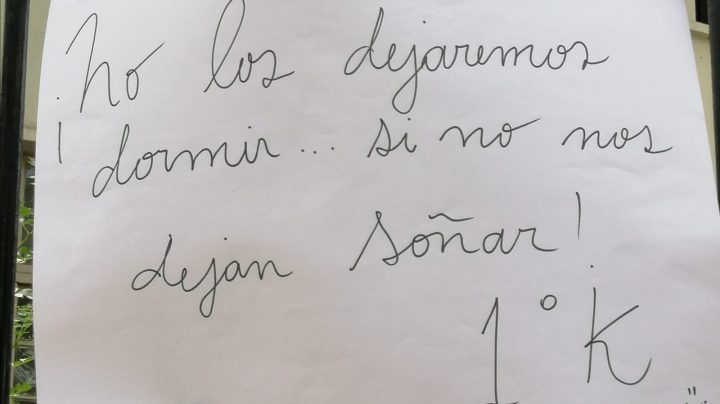 ¡No los dejaremos
dormir... si no nos
dejan soñar!
1° K